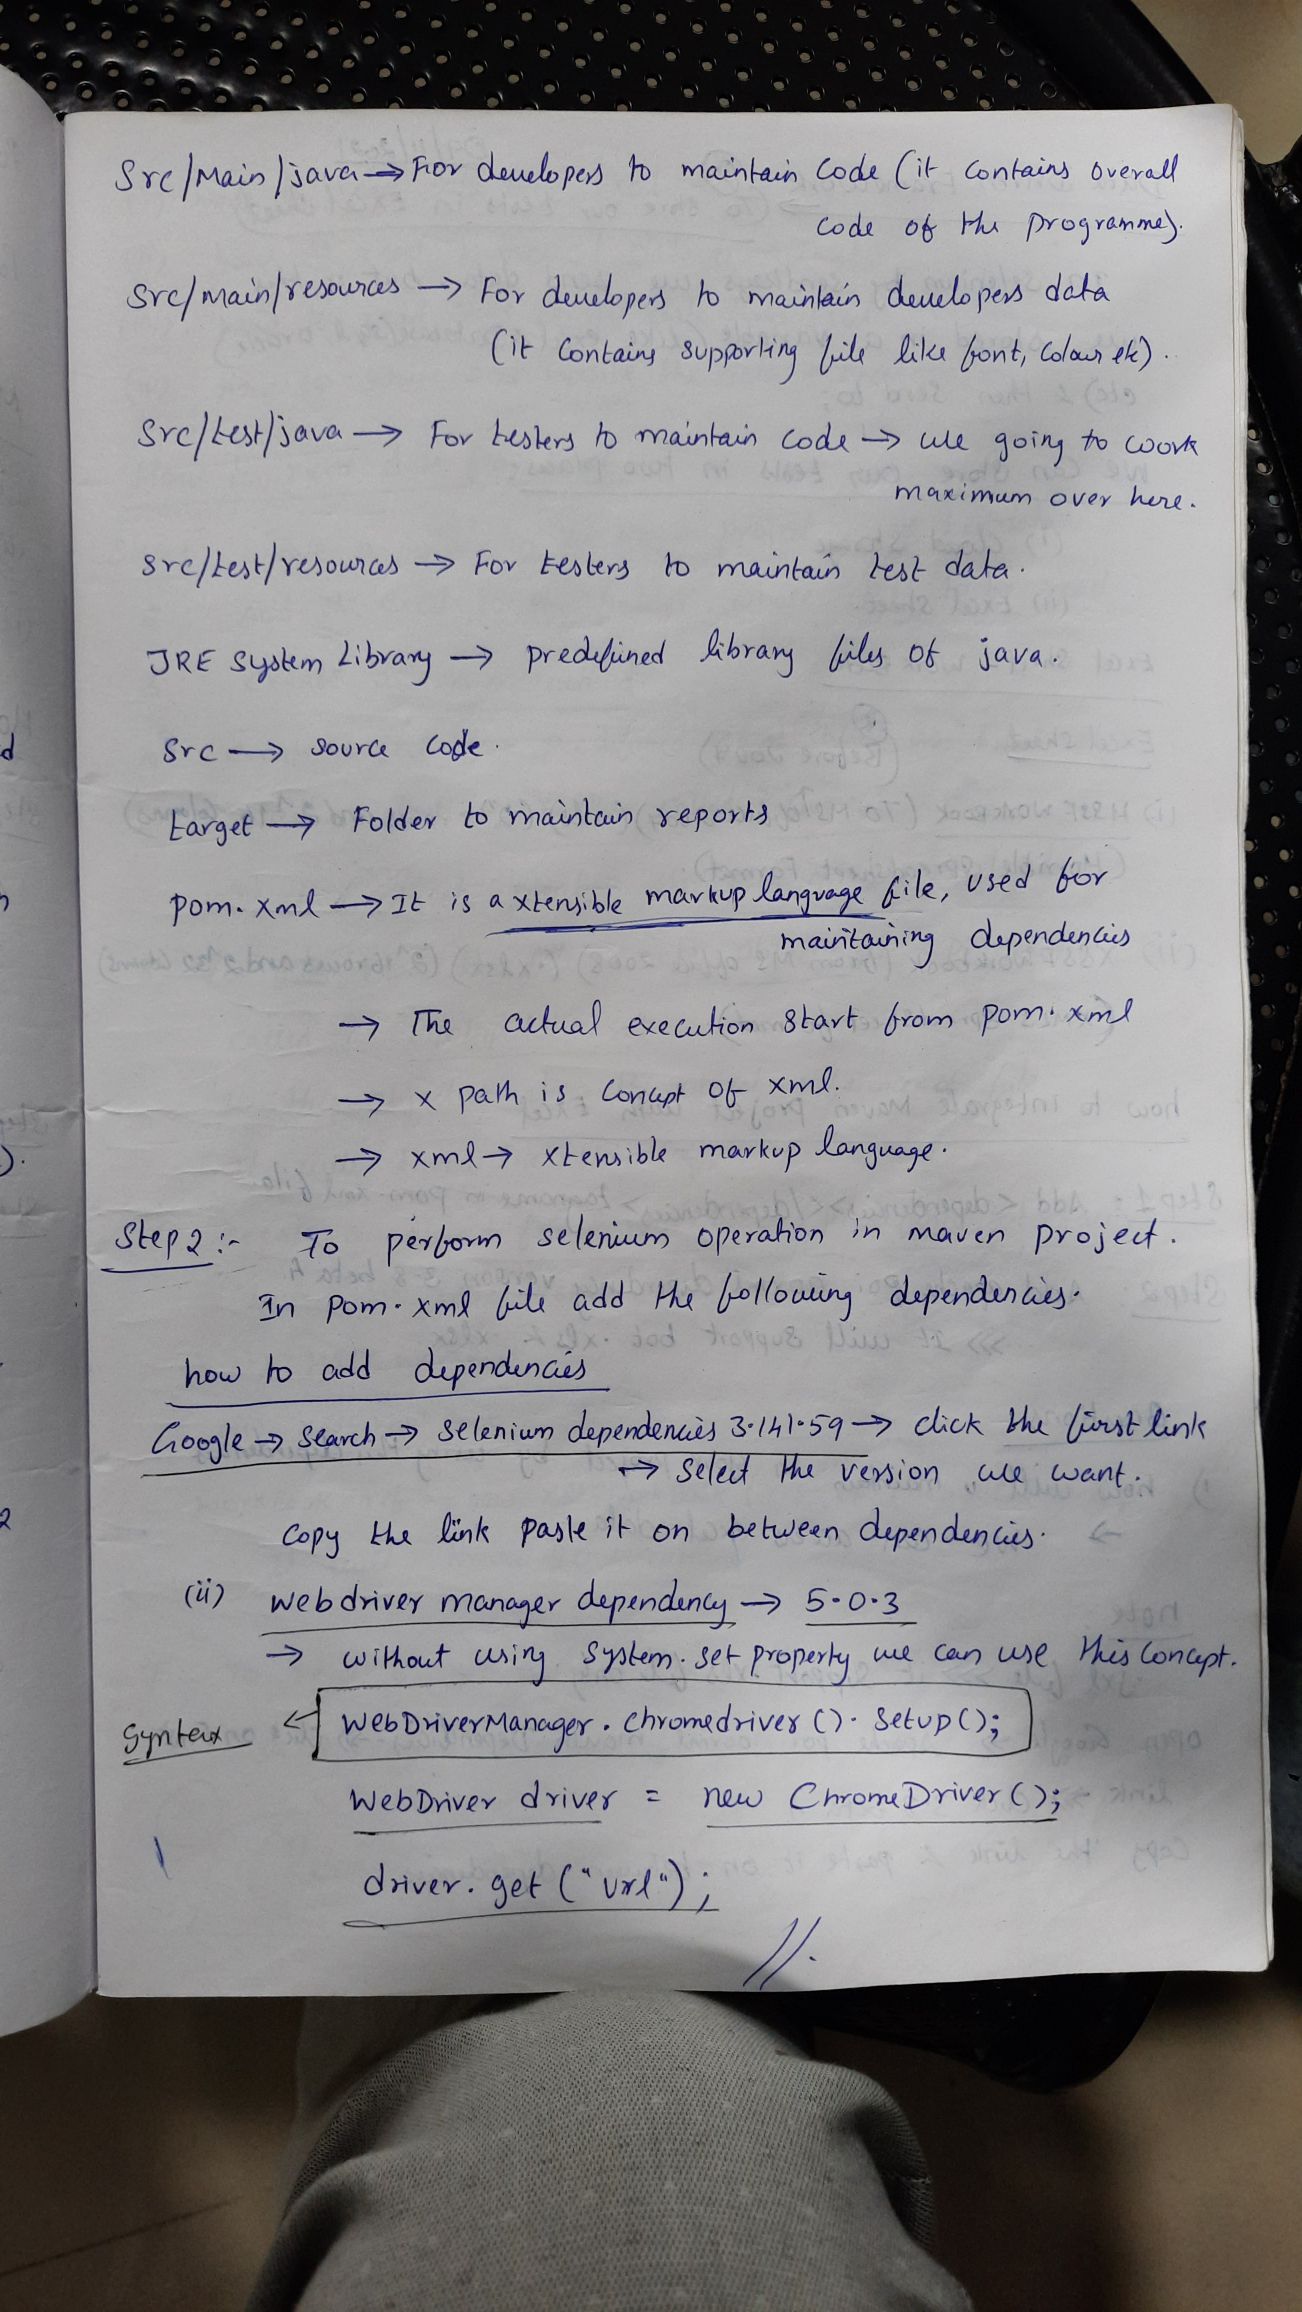 Src/Main/java → For developers to maintain code (it contains overall
code of the programme).
Src/main/resources → For developers to maintain developers data
(it contains supporting file like font, colour etc).
Src/test/java → For testers to maintain code → we going to work
maximum over here.
Src/test/resources → For testers to maintain test data.
JRE System Library → predefined library files of java.
Src → source code.
target → Folder to maintain reports
pom.xml → It is a xtensible markup language file, used for
maintaining dependencies
→ The actual execution start from pom.xml
→ x path is concept of xml.
→ xml → xtensible markup language.
Step 2 :- To perform selenium operation in maven project.
In pom.xml file add the following dependencies.
how to add dependencies
Google → Search → selenium dependencies 3.141.59 → click the first link
→ select the version we want.
copy the link paste it on between dependencies.
(ii) webdriver manager dependency → 5.0.3
→ without using System.set property we can use this concept.
Syntax ← WebDriverManager.chromedriver().Setup();
WebDriver driver = new ChromeDriver();
driver.get("url");